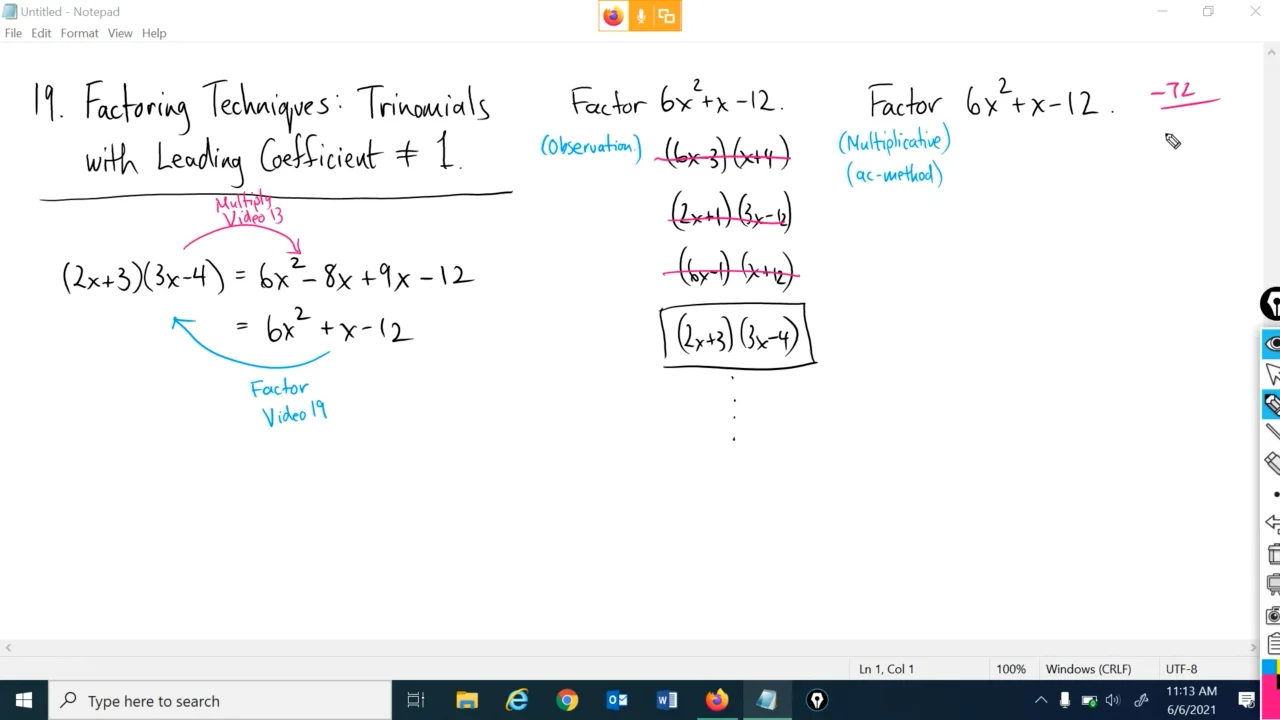 Untitled - Notepad
File Edit Format View Help
19. Factoring Techniques: Trinomials
with Leading Coefficient ≠ 1.
Multiply
Video 13
(2x+3)(3x-4) = 6x² - 8x + 9x - 12
= 6x² + x - 12
Factor
Video 19
Factor 6x² + x - 12.
(Observation)
(6x-3)(x+4)
(2x+1)(3x-12)
(6x-1)(x+12)
(2x+3)(3x-4)
Factor 6x² + x - 12.
(Multiplicative)
(ac-method)
-72
Ln 1, Col 1 100% Windows (CRLF) UTF-8
Type here to search
11:13 AM
6/6/2021